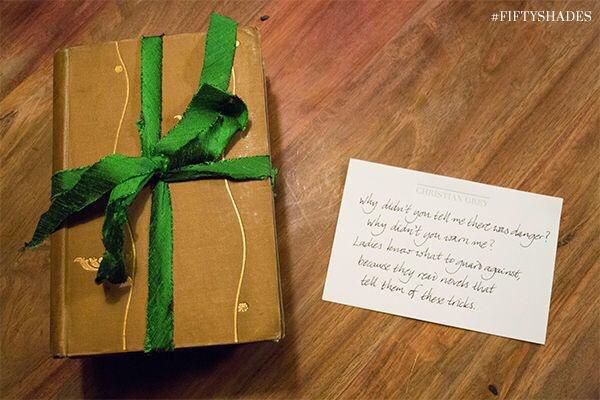 #FIFTYSHADES
CHRISTIAN GREY
Why didn't you tell me there was danger?
Why didn't you warn me?
Ladies know what to guard against,
because they read novels that
tell them of these tricks.